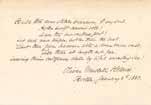 Build thee more stately mansions, O my soul,
As the swift seasons roll!
Leave thy low-vaulted past!
Let each new temple, nobler than the last,
Shut thee from heaven with a dome more vast,
Till thou at length art free,
Leaving thine outgrown shell by life's unresting sea!
Oliver Wendell Holmes.
Boston, January